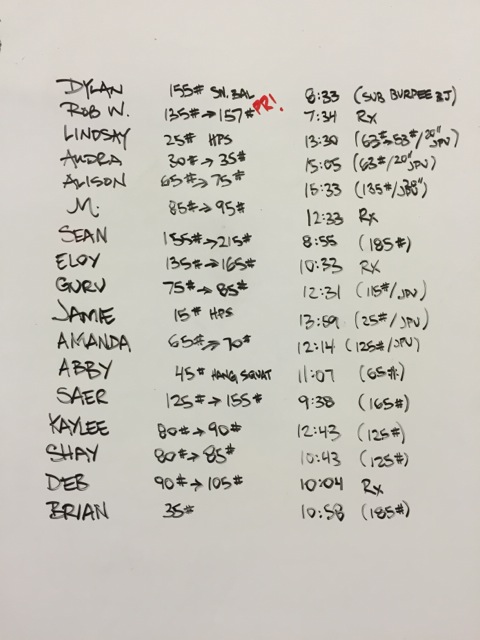 DYLAN 155# SN. BAL 8:33 (SUB BURPEE BJ)
ROB W. 135#→157# PR! 7:34 RX
LINDSAY 25# HPS 13:30 (63#→53#/20" JPU)
AUDRA 30#→35# 15:05 (63#/20" JPU)
ALISON 65#→75# 15:33 (135#/JPU)
M. 85#→95# 12:33 RX
SEAN 155#→215# 8:55 (185#)
ELOY 135#→165# 10:33 RX
GURU 75#→85# 12:31 (115#/JPU)
JAMIE 15# HPS 13:59 (25#/JPU)
AMANDA 65#→70# 12:14 (125#/JPU)
ABBY 45# HANG SQUAT 11:07 (65#)
SAER 125#→155# 9:38 (165#)
KAYLEE 80#→90# 12:43 (125#)
SHAY 80#→85# 10:43 (125#)
DEB 90#→105# 10:04 RX
BRIAN 35# 10:58 (185#)